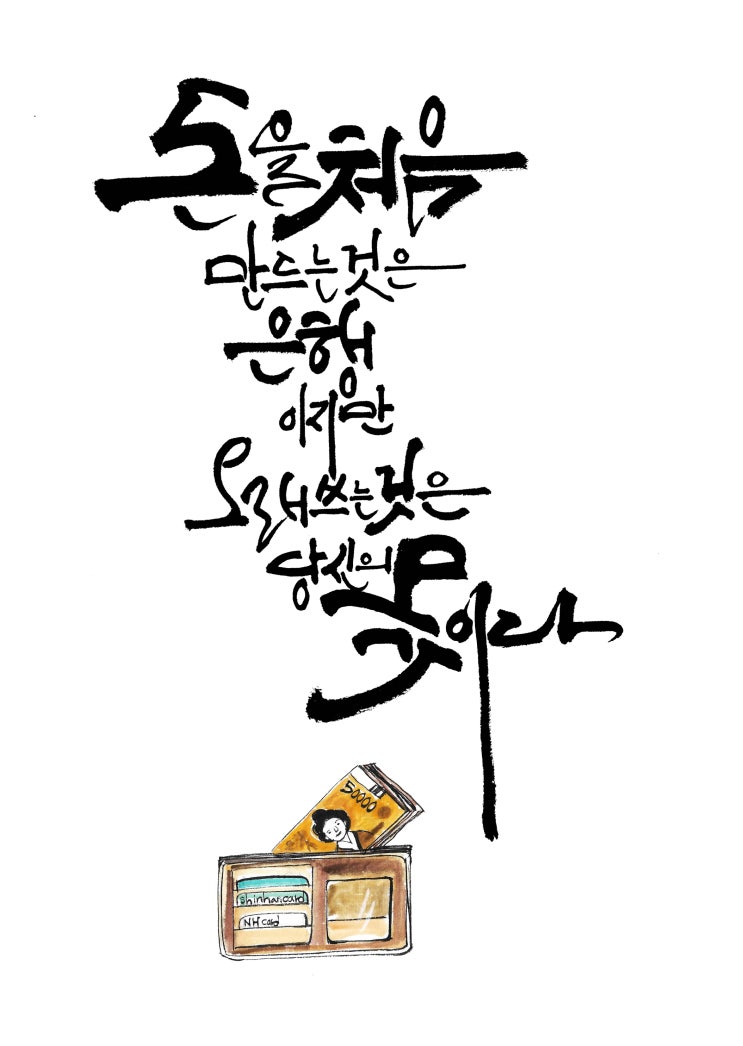 돈을 처음
만드는 것은
은행
이지만
오래 쓰는 것은
당신의 몫이다
50000
Shinhan card
NH card